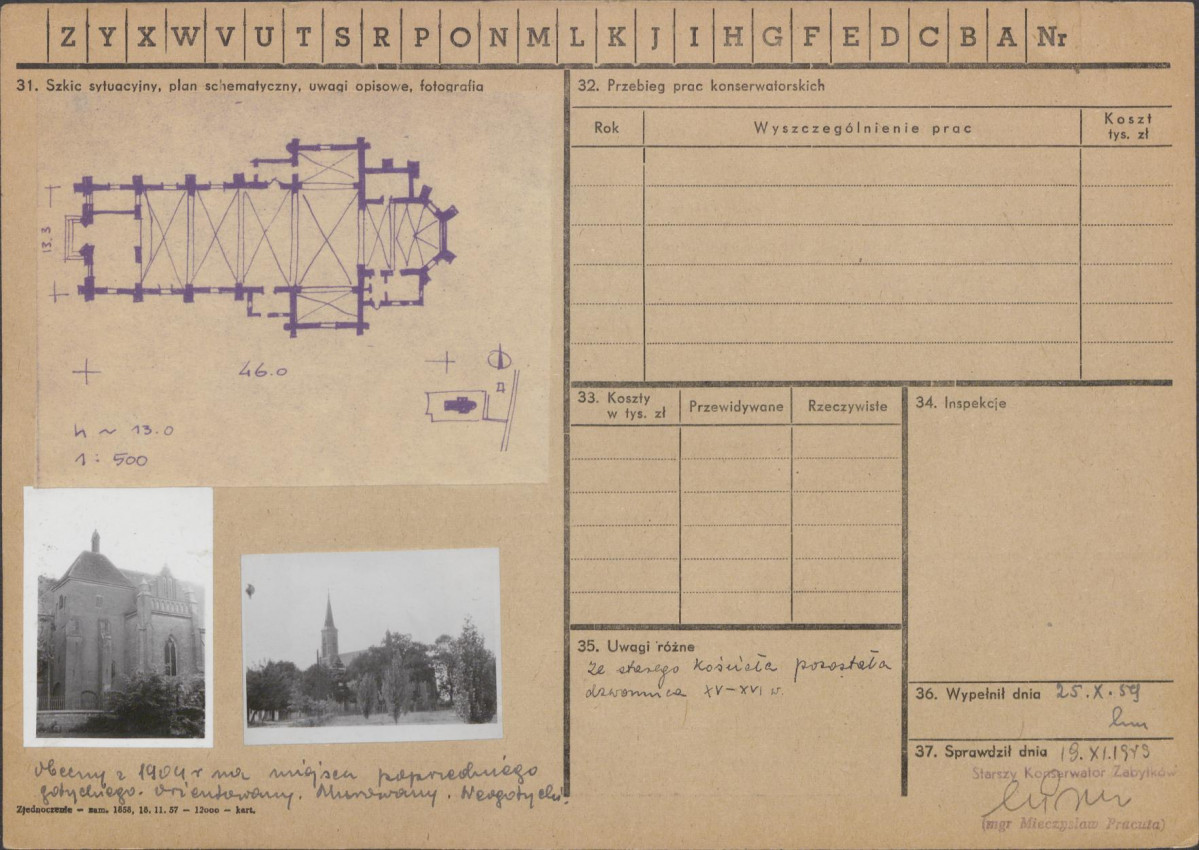 Z Y X W V U T S R P O N M L K J I H G F E D C B A Nr
31. Szkic sytuacyjny, plan schematyczny, uwagi opisowe, fotografia
13.3
46.0
h ~ 13.0
1 : 500
obecny z 1904 r na miejscu poprzedniego
gotyckiego. Orientowany. Murowany. Neogotycki.
Zjednoczenie — zam. 1658, 16. 11. 57 — 12000 — kart.
32. Przebieg prac konserwatorskich
Rok
Wyszczególnienie prac
Koszt
tys. zł
33. Koszty
w tys. zł
Przewidywane
Rzeczywiste
34. Inspekcje
35. Uwagi różne
Ze starego kościoła pozostała
dzwonnica XV–XVI w.
36. Wypełnił dnia 25.X.59
37. Sprawdził dnia
Starszy Konserwator Zabytków
(mgr Mieczysław Pracuta)